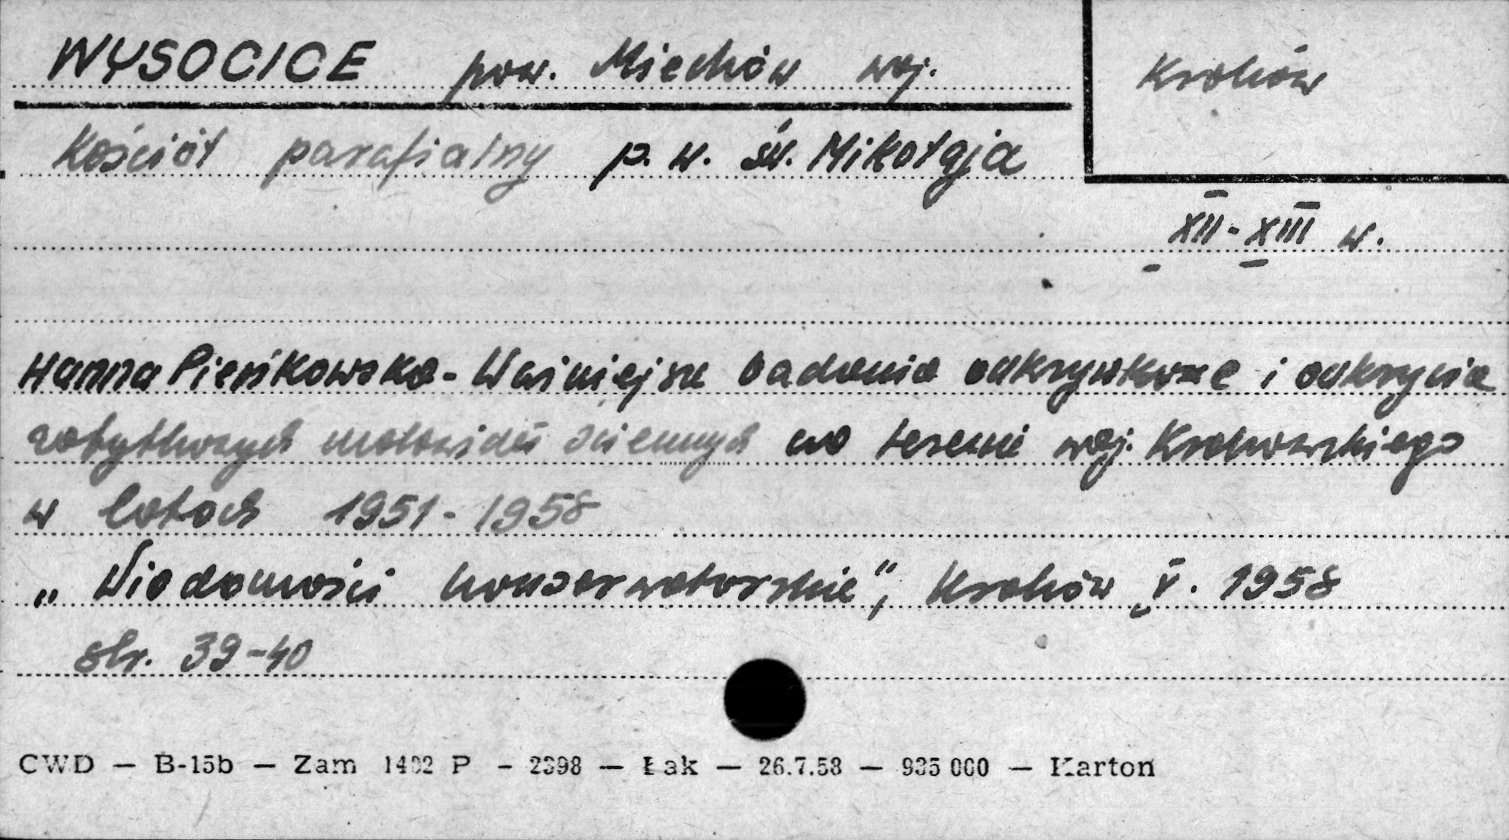 WYSOCICE pow. Miechów woj. Kraków
Kościół parafialny p.w. św. Mikołaja
XII-XIII w.
Hanna Pieńkowska - Ważniejsze badania odkrywkowe i odkrycia
zabytkowych malowideł ściennych na terenie woj. Krakowskiego
w latach 1951-1958
„Wiadomości konserwatorskie", Kraków V. 1958
str. 39-40
CWD — B-15b — Zam 1402 P - 2398 — Łak — 26.7.58 — 935 000 — Karton